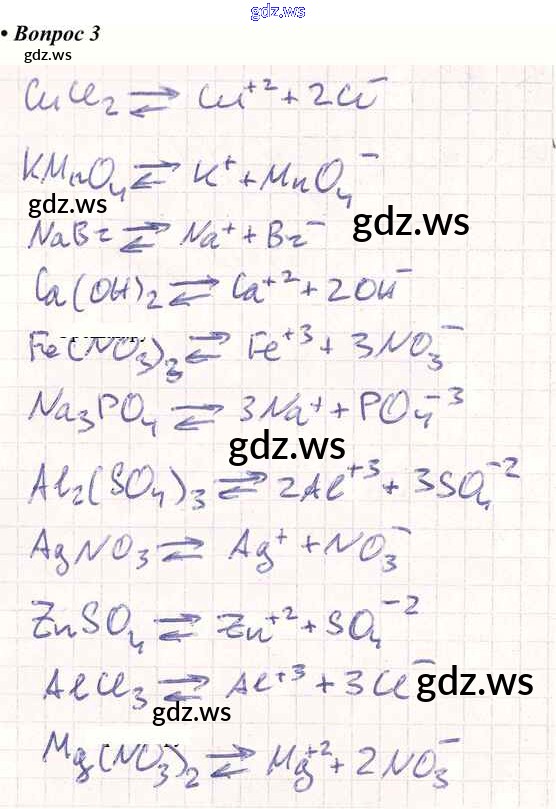 gdz.ws
• Вопрос 3
gdz.ws
CuCl₂ ⇄ Cu⁺² + 2Cl⁻
KMnO₄ ⇄ K⁺ + MnO₄⁻
gdz.ws
gdz.ws
NaBr ⇄ Na⁺ + Br⁻
Ca(OH)₂ ⇄ Ca⁺² + 2OH⁻
Fe(NO₃)₃ ⇄ Fe⁺³ + 3NO₃⁻
Na₃PO₄ ⇄ 3Na⁺ + PO₄⁻³
gdz.ws
Al₂(SO₄)₃ ⇄ 2Al⁺³ + 3SO₄⁻²
AgNO₃ ⇄ Ag⁺ + NO₃⁻
ZnSO₄ ⇄ Zn⁺² + SO₄⁻²
AlCl₃ ⇄ Al⁺³ + 3Cl⁻
gdz.ws
gdz.ws
Mg(NO₃)₂ ⇄ Mg⁺² + 2NO₃⁻